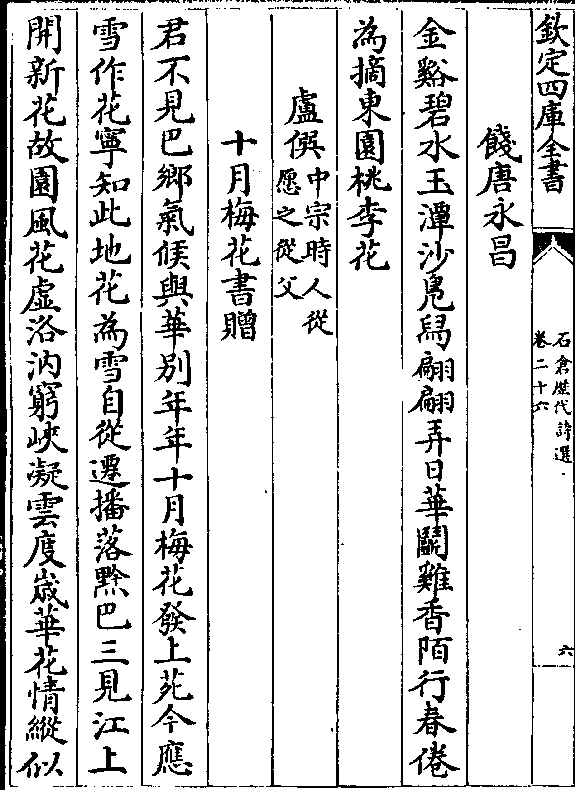 欽定四庫全書
石倉歷代詩選
卷二十六
六
餞唐永昌
金谿碧水玉潭沙鳧舄翩翩弄日華鬭雞香陌行春倦
為摘東園桃李花
盧僎中宗時人從
愿之從父
十月梅花書贈
君不見巴鄉氣候與華別年年十月梅花發上苑今應
雪作花寧知此地花為雪自從遷播落黔巴三見江上
開新花故園風花虛洛汭窮峽凝雲度歲華花情縱似